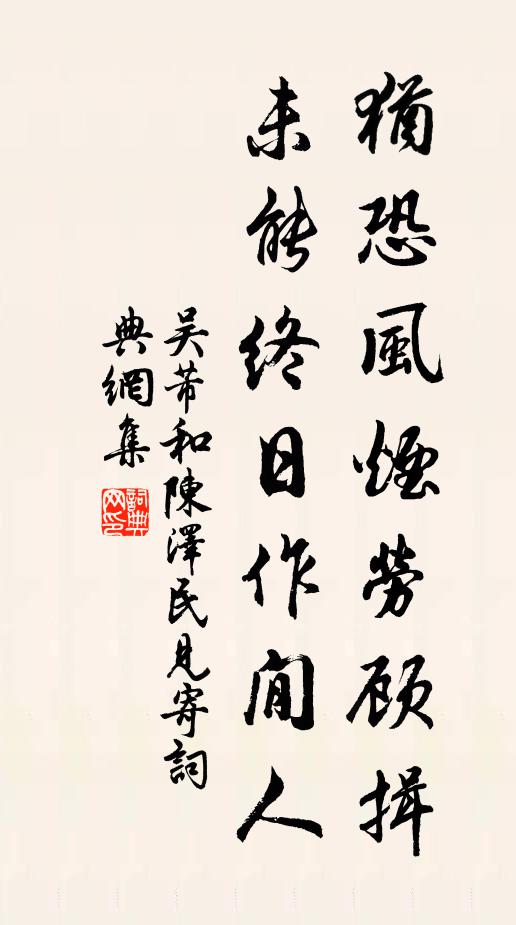 猶恐風煙勞顧揖
未能終日作閒人
吴芾和陳澤民見寄詞
典網集
詞典网印